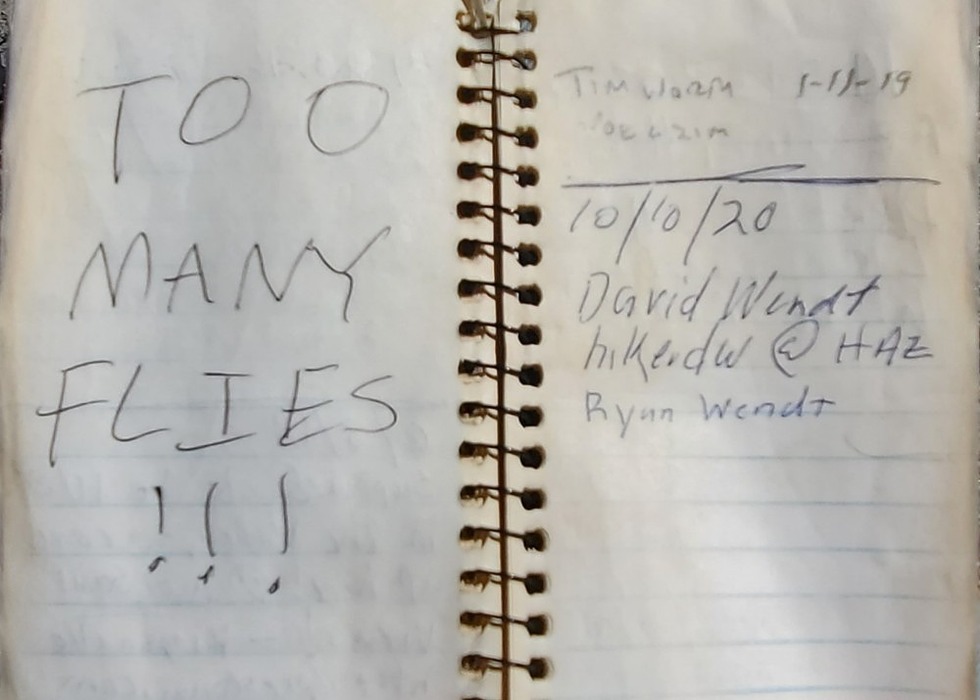 TOO
MANY
FLIES
!!!
TIM WORM 1-11-19
10/10/20
David Wendt
hikerdw @ HAZ
Ryan Wendt